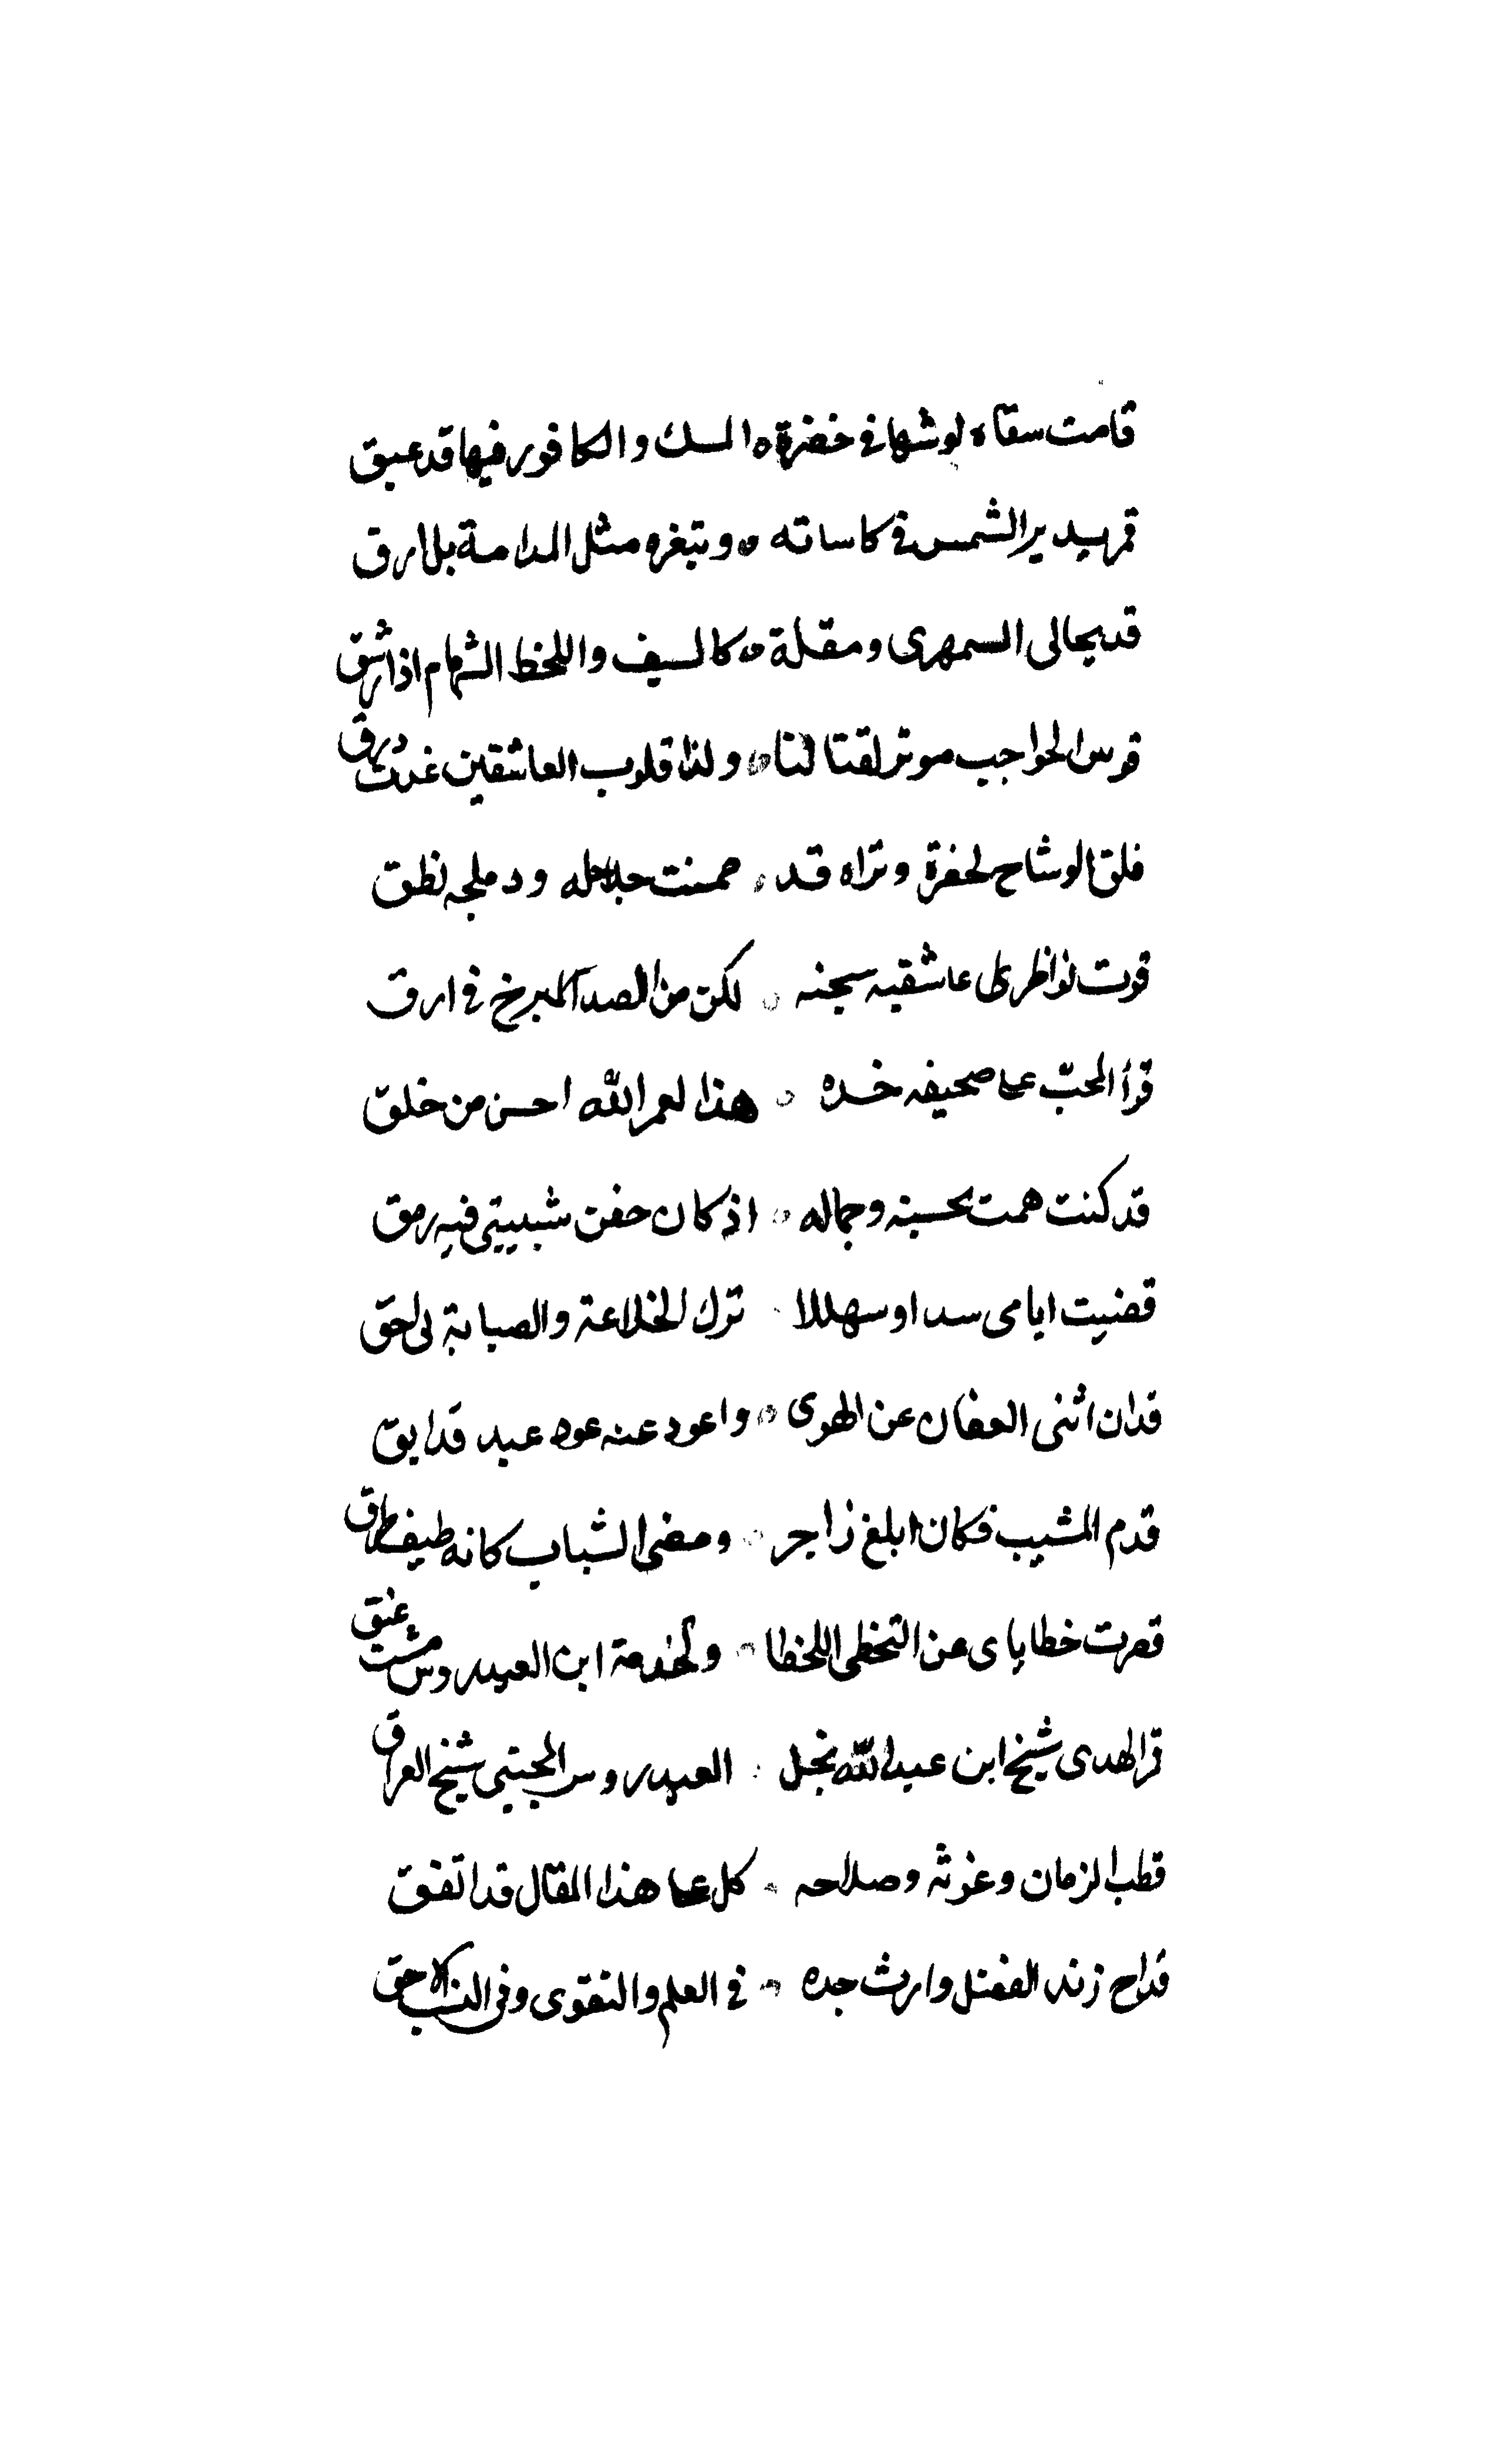 قامت سقاه لوشها في خضرة ه المسك والكافور فيها قد عبق
قمر يدير الشمس في كاساته ه وبثغره مثل المدامة بل ارق
قد يحالى السمهرى ومقلة ه كالسيف واللحظ السهام اذا رشق
قوس الحواجب موتر لقتالنا ه ولذا قلوب العاشقين غدت درق
قلق الوشاح لخفرة وتراه قد ه صمنت جلاجله ودملجه نطق
قوت نواظر عاشقيه بحسنه ه لكن من الصد المبرح في ارق
قرأ المحبّ على صحيفه خده ه هذا لعمر الله احسن من خلق
قد كنت همت بحسنه وجماله ه اذ كان حفن شبيبتي فيه رمق
قضيت ايامى سدا وسهللا ترك الخلاعة والصبابة لى احق
قد ان اثنى العنان عن الهوى ه واعود عنه عود عبد قد ابق
قدم المشيب فكان ابلغ زاجر ه ومضى الشباب كانه طيف طرق
قصرت خطاياى عن التخطى للخطا ه ولخدمة ابن العيدروس مشت عنق
قمر الهدى شيخ ابن عبد الله نجل العيدروس المجتبى شيخ العراق
قطب الزمان وغوثه وصلاحه ه كل على هذا المقال قد اتفق
قداح زند الفضل وارث جده ه في العلم والتقوى وفى النسك الاحق